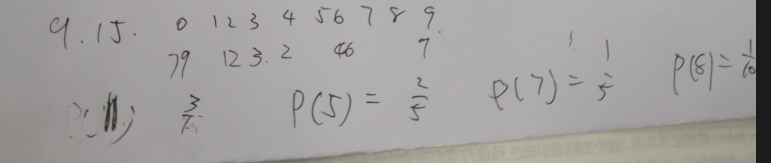 9.15. 0 1 2 3 4 5 6 7 8 9.
79 12 3. 2 46 7
3/10 P(5) = 2/5 P(7) = 1/5 P(8) = 1/10